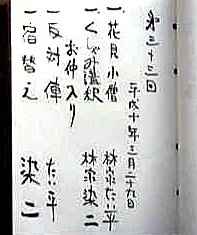 第三十三回
平成十年三月二十九日
一花見小僧 林家たい平
一くしゃみ講釈 林家染二
お仲入り
一反対俥 たい平
一宿替え 染二